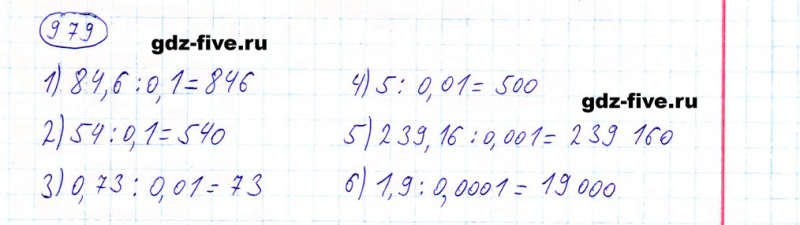 979
gdz-five.ru
1) 84,6 : 0,1 = 846
2) 54 : 0,1 = 540
3) 0,73 : 0,01 = 73
4) 5 : 0,01 = 500
gdz-five.ru
5) 239,16 : 0,001 = 239 160
6) 1,9 : 0,0001 = 19 000